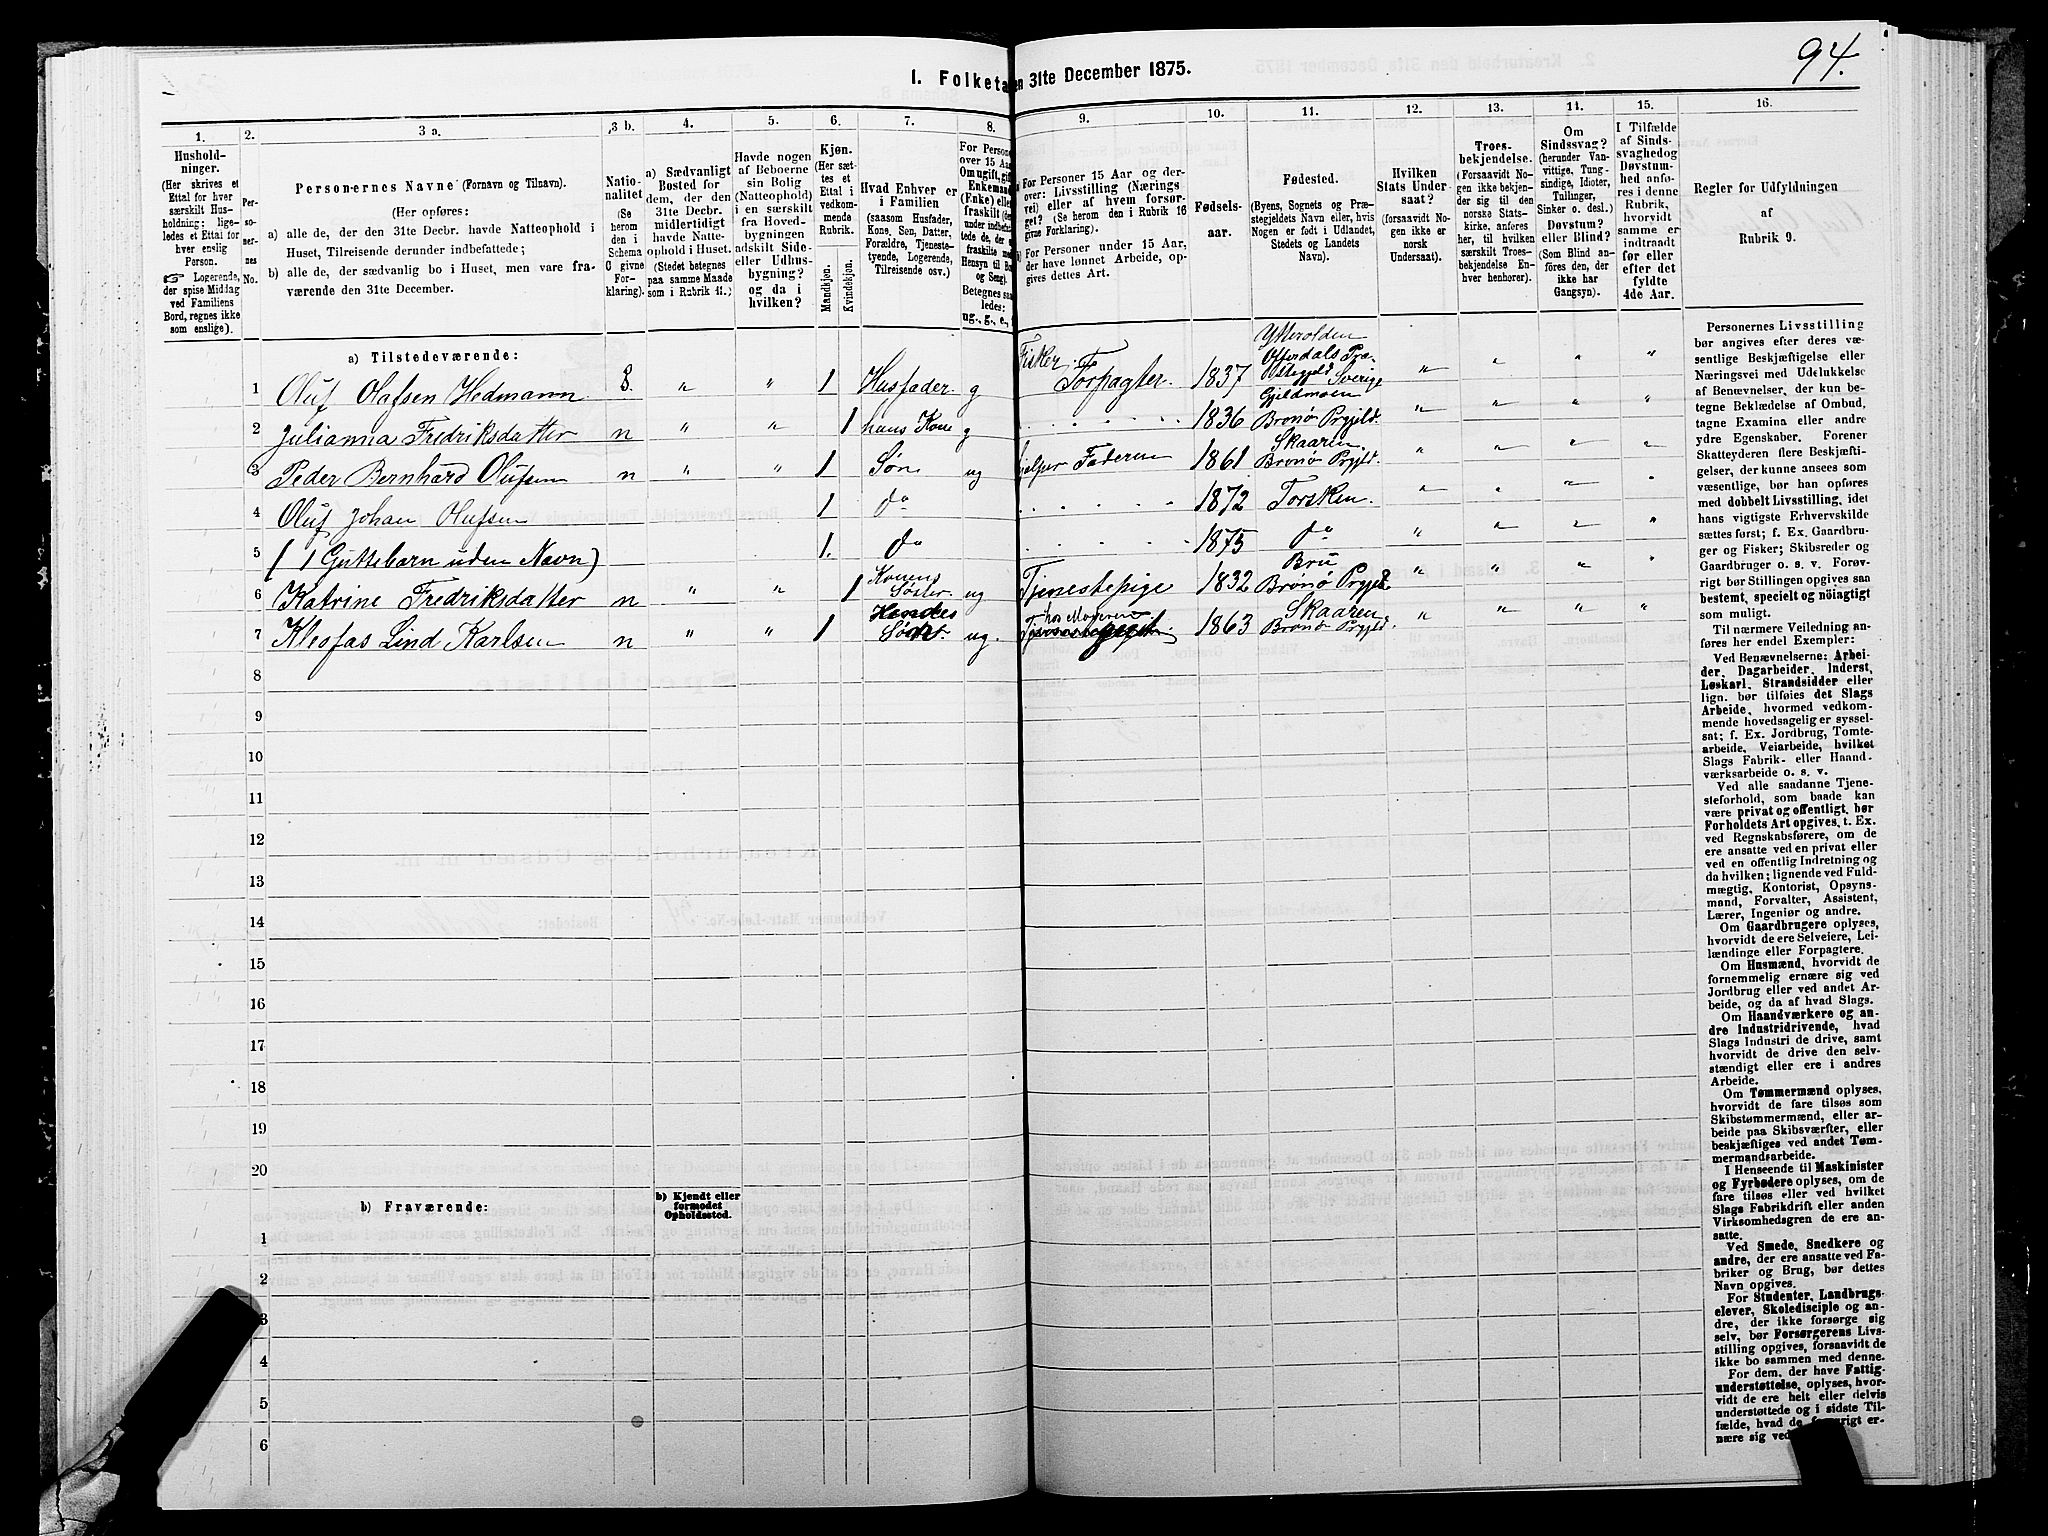 94.
1. Folketa
en 31te December 1875.
1.
2.
3 a.
3 b.
4.
5.
6.
7.
8.
9.
10.
11.
12.
13.
14.
15.
16.
Hushold-
ninger.
(Her skrives et
Ettal for hver
særskilt Hus-
holdning; lige-
ledes et Ettal for
hver enslig
Person.
☞ Logerende,
der spise Middag
ved Familiens
Bord, regnes ikke
som enslige).
Per-
so-
ner-
nes
No.
Personernes Navne (Fornavn og Tilnavn).
(Her opføres:
a) alle de, der den 31te Decbr. havde Natteophold i
Huset, Tilreisende derunder indbefattede;
b) alle de, der sædvanlig bo i Huset, men vare fra-
værende den 31te December.
Natio-
nalitet
(Se
herom
den i
Schema
C givne
For-
klaring).
a) Sædvanligt
Bosted for
dem, der den
31te Decbr.
midlertidigt
havde Natte-
ophold i Huset.
(Stedet betegnes
paa samme Maade
som i Rubrik 11.)
Havde nogen
af Beboerne
sin Bolig
(Natteophold)
i en særskilt
fra Hoved-
bygningen
adskilt Side-
eller Udhus-
bygning?
og da i
hvilken?
Kjøn.
(Her sæt-
tes et
Ettal i
vedkom-
mende
Rubrik.
Mandkjøn.
Kvindekjøn.
Hvad Enhver er
i Familien
(saasom Husfader,
Kone, Søn, Datter,
Forældre, Tjeneste-
tyende, Logerende,
Tilreisende osv.)
For Persone
over 15 Aa
Om ugift, gif
Enkeman
(Enke) elle
fraskilt (de
under indbefa
tede de, der e
fraskilte me
Hensyn til Bo
og Seng).
Betegnes saa
ledes:
ug., g., e.,
For Personer 15 Aar og der-
over: Livsstilling (Nærings
vei) eller af hvem forsør-
get? (Se herom den i Rubrik 16
givne Forklaring).
For Personer under 15 Aar,
der have lønnet Arbeide, op-
gives dettes Art.
Fødsels-
aar.
Fødested.
(Byens, Sognets og Præ-
stegjeldets Navn eller, hvis
Nogen er født i Udlandet,
Stedets og Landets
Navn).
Hvilken
Stats Under-
saat?
(forsaavidt No-
gen ikke er
norsk
Undersaat).
Troes-
bekjendelse.
(Forsaavidt No-
gen ikke bekjen-
der sig til den
norske Stats-
kirke, anføres
her, til hvilken
særskilt Troes-
bekjendelse En-
hver henhører).
Om
Sindssvag?
(herunder Van-
vittige, Tung-
sindige, Idioter,
Tullinger,
Sinker o. desl.)
Døvstum?
eller Blind?
(Som Blind an-
føres den, der
ikke har
Gangsyn).
I Tilfælde
af Sinds-
svaghed og
Døvstum-
hed anfø-
res i denne
Rubrik,
hvorvidt
samme er
indtraadt
før eller
efter det
fyldte
4de Aar.
Regler for Udfyldningen
af
Rubrik 9.
a) Tilstedeværende:
1 Oluf Olafsen Hedmann S. " " 1 Husfader g Fisker. Forpagter. 1837 Offerdals Præ- Sverige " " " "
2 Julianna Fredriksdatter n " " 1 hans Kone g 1836 Gjildmoen Brønø Prgjeld. " " " "
3 Peder Bernhard Olufsen n " " 1 Søn ug hjelper Faderen 1861 Skaaren Brønø Prgjld. " " " "
4 Oluf Johan Olufsen 1 do 1872 Torsken. " " " "
5 ( 1 Guttebarn uden Navn) 1. do 1875 do " " " "
6 Katrine Fredriksdatter n " " 1 Konens Søster. ug Tjenestepige 1832 Bru Brønø Prgjeld " " " "
7 Kleofas Lind Karlsen n " " 1 Hendes Søn ug. hos Moderen 1863 Skaaren Brønø Prgjeld. " " " "
8
9
10
11
12
13
14
15
16
17
18
19
20
b) Fraværende:
b) Kjendt eller
formodet
Opholdssted.
1
2
3
4
5
6
Personernes Livsstilling
bør angives efter deres væ-
sentlige Beskjæftigelse eller
Næringsvei med Udelukkelse
af Benævnelser, der kun be-
tegne Beklædelse af Ombud,
tagne Examina eller andre
ydre Egenskaber. Forener
Skatteyderen flere Beskjæfti-
gelser, der kunne ansees som
væsentlige, bør han opføres
med dobbelt Livsstilling, idet
hans vigtigste Erhvervskilde
sættes først; f. Ex. Gaardbru-
ger og Fisker; Skibsreder og
Gaardbruger o. s. v. Forøv-
rigt bør Stillingen opgives saa
bestemt, specielt og nøiagtigt
som muligt.
Til nærmere Veiledning an-
føres her endel Exempler:
Ved Benævnelserne: Arbei-
der, Dagarbeider, Inderst,
Løskarl, Strandsidder eller
lign. bør tilføies det Slags
Arbeide, hvormed vedkom-
mende hovedsagelig er syssel-
sat; f. Ex. Jordbrug, Tomte-
arbeide, Veiarbeide, hvilket
Slags Fabrik- eller Haand-
værksarbeide o. s. v.
Ved alle saadanne Tjene-
steforhold, som baade kan
være privat og offentligt, bør
Forholdets Art opgives, t. Ex.
ved Regnskabsførere, om de
ere ansatte ved en privat eller
ved en offentlig Indretning og
da hvilken; lignende ved Fuld-
mægtig, Kontorist, Opsyns-
mand, Forvalter, Assistent,
Lærer, Ingeniør og andre.
Om Gaardbrugere oplyses,
hvorvidt de ere Selveiere, Lei-
lændinge eller Forpagtere.
Om Husmænd, hvorvidt de
fornemmelig ernære sig ved
Jordbrug eller ved andet Ar-
beide, og da af hvad Slags.
Om Haandværkere og an-
dre Industridrivende, hvad
Slags Industri de drive, samt
hvorvidt de drive den selv-
stændigt eller ere i andres
Arbeide.
Om Tømmermænd oplyses,
hvorvidt de fare tilsøs som
Skibstømmermænd, eller ar-
beide paa Skibsværfter, eller
beskjæftiges ved andet Tøm-
mermandsarbeide.
I Henseende til Maskinister
og Fyrbødere oplyses, om de
fare tilsøs eller ved hvilket
Slags Fabrikdrift eller anden
Virksomhedsgren de ere an-
satte.
Ved Smede, Snedkere og
andre, der ere ansatte ved Fa-
briker og Brug, bør dettes
Navn opgives.
For Studenter, Landbrugs-
elever, Skoledisciple og an-
dre, der ikke forsørge sig
selv, bør Forsørgerens Livs-
stilling opgives, forsaavidt de
ikke bo sammen med denne.
For dem, der have Fattig-
understøttelse, oplyses, hvor-
vidt de ere helt eller delvis
understøttede og i sidste Til-
fælde, hvad de forøvrigt er-
nære sig ved